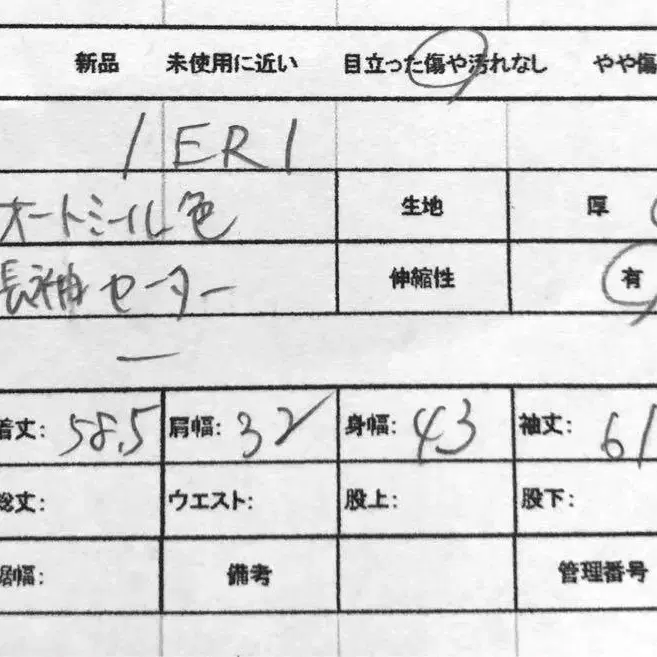 新品 未使用に近い 目立った傷や汚れなし やや傷
IERI
オートミール色 生地 厚
長袖セーター 伸縮性 有
—
着丈: 58.5 肩幅: 32 身幅: 43 袖丈: 61
総丈: ウエスト: 股上: 股下:
裾幅: 備考 管理番号